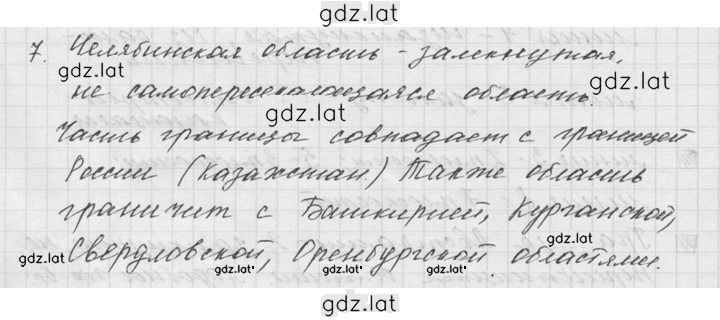 gdz.lat
7. Челябинская область - замкнутая,
gdz.lat
gdz.lat
не самопересекающаяся область
gdz.lat
Часть границы совпадает с границей
gdz.lat
gdz.lat
России (Казахстан.) Также область
gdz.lat
граничит с Башкирией, Курганской,
gdz.lat
Свердловской, Оренбургской областями.
gdz.lat
gdz.lat
gdz.lat
gdz.lat